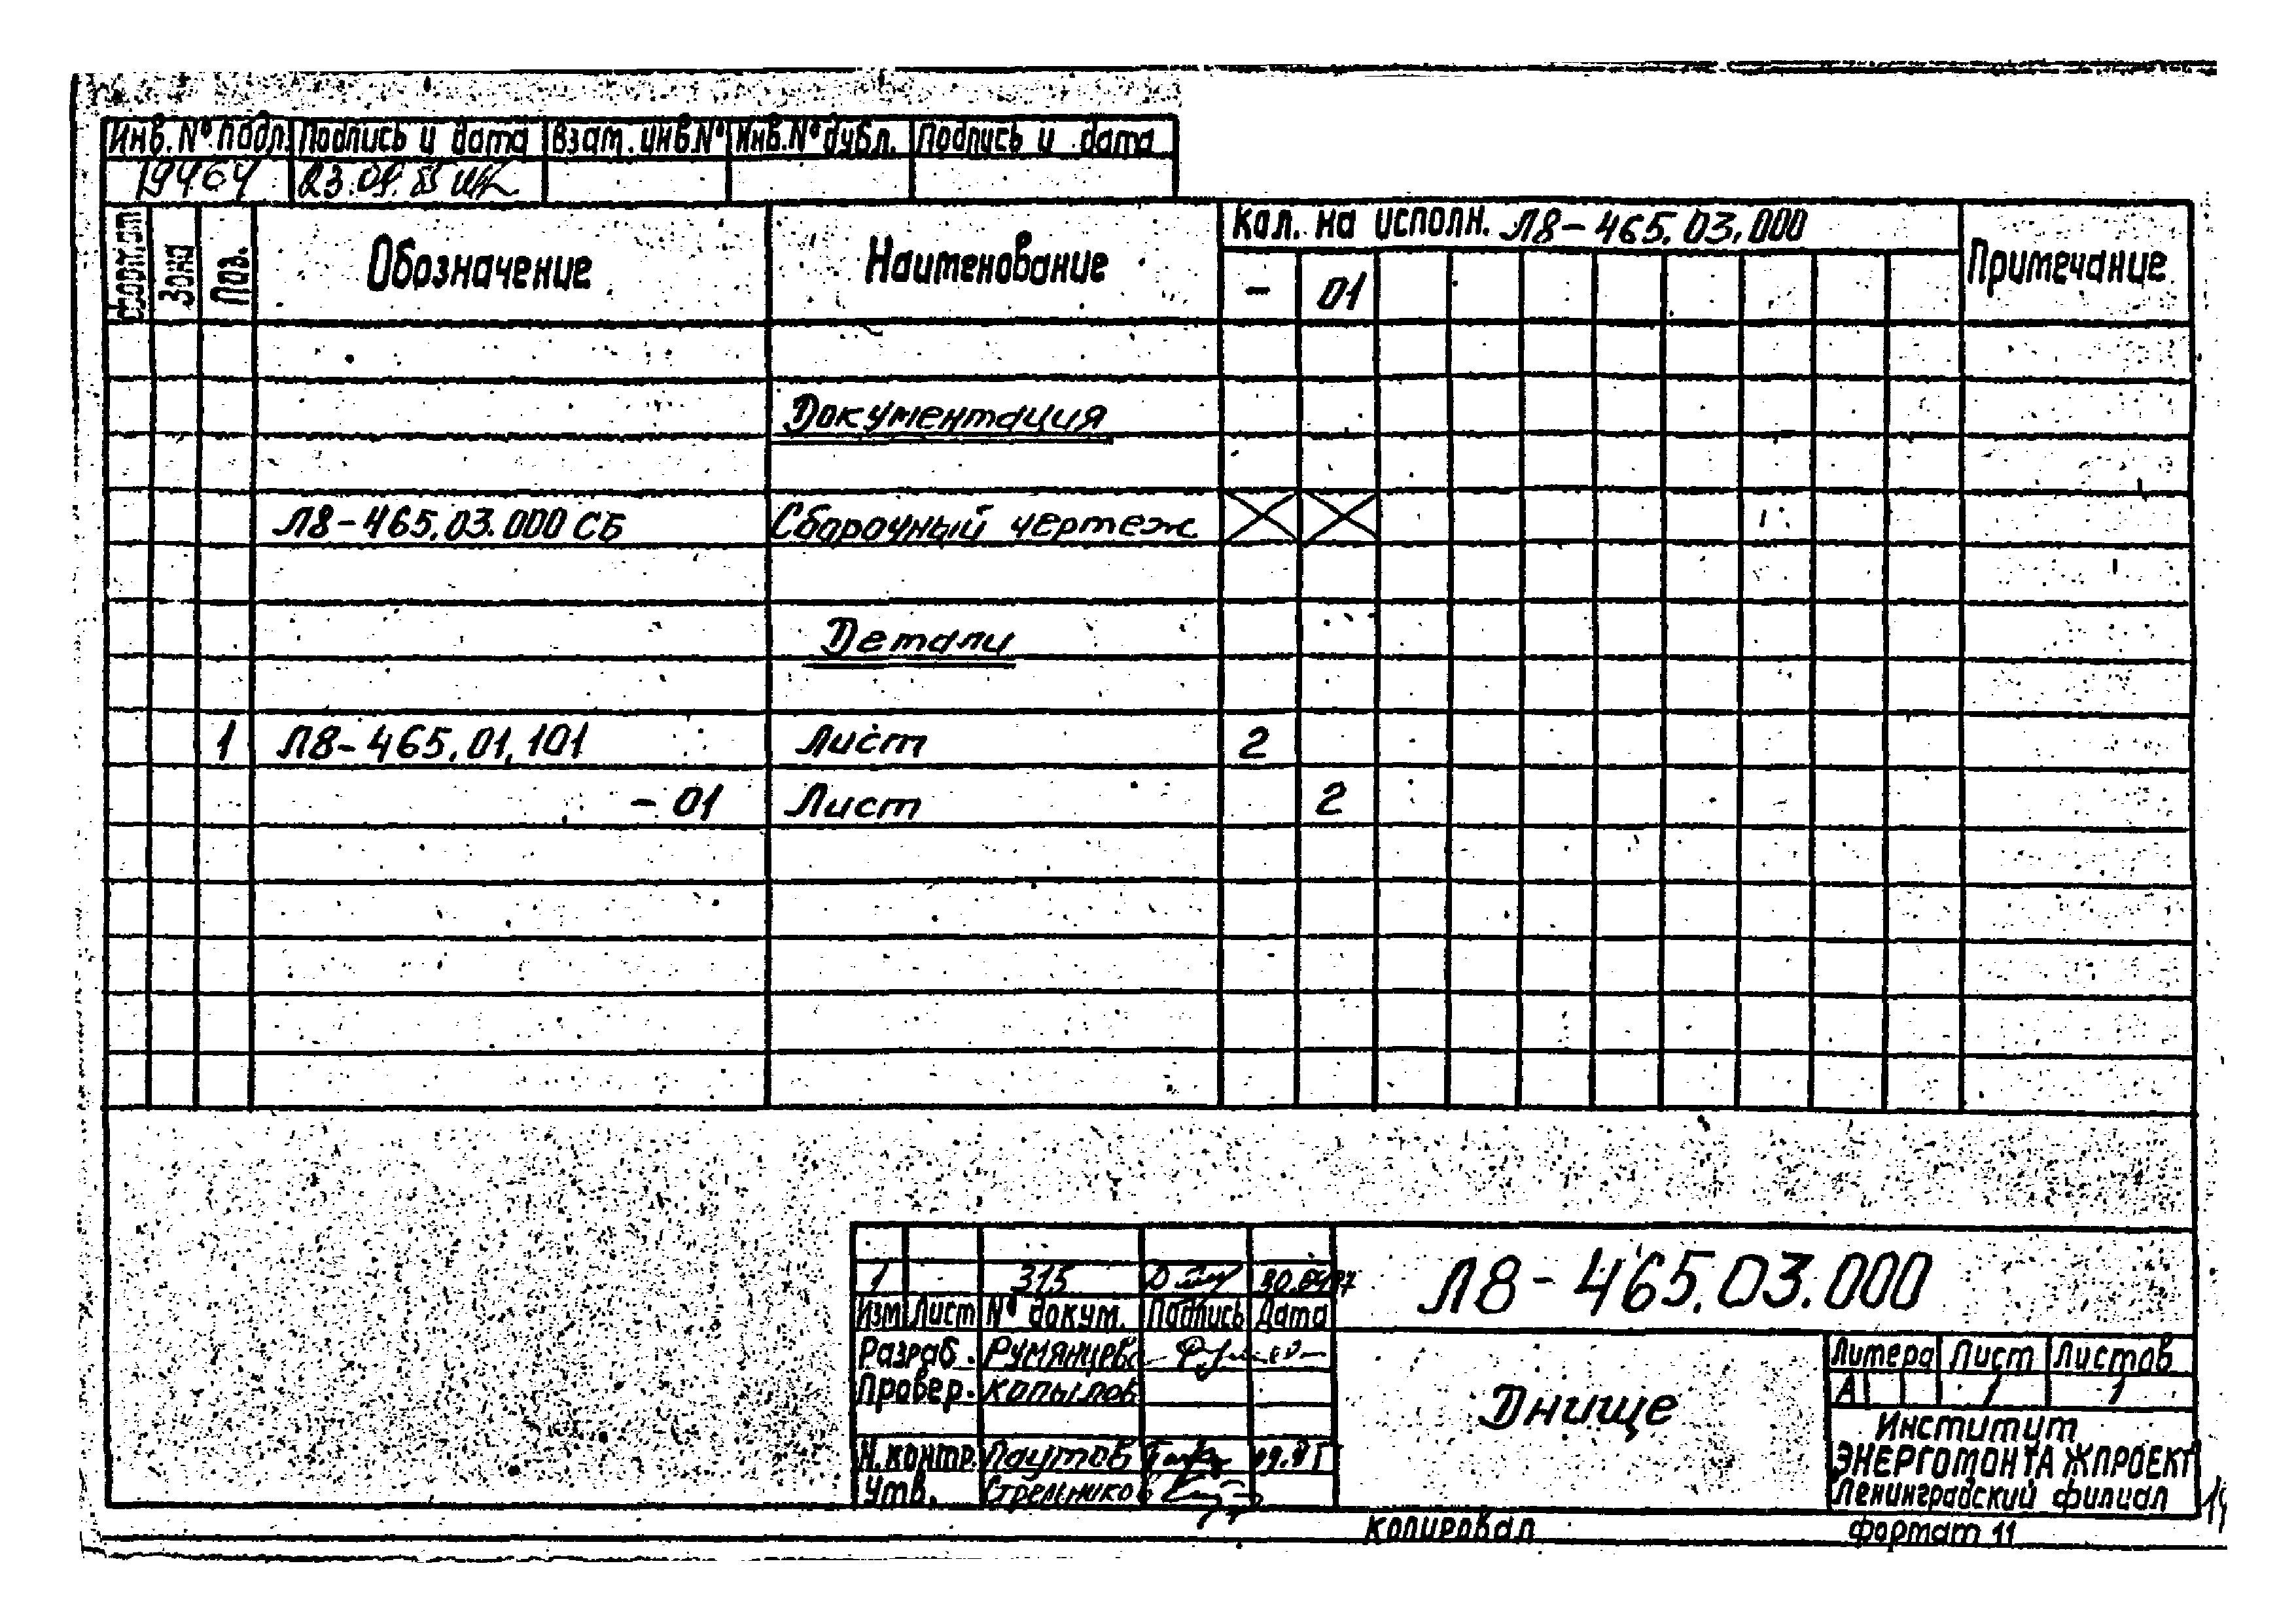 Инв. № подл. Подпись и дата Взам. инв. № Инв. № дубл. Подпись и дата
19464 23.09.85
Формат Зона Поз. Обозначение Наименование Кол. на исполн. Л8-465.03.000 Примечание
- 01
Документация
Л8-465.03.000 СБ Сборочный чертеж
Детали
1 Л8-465.01.101 Лист 2
- 01 Лист 2
1 315
Изм Лист № докум. Подпись Дата
Л8-465.03.000
Разраб. Румянцева
Провер. Копылов
Н.контр. Паутов
Утв. Стрельников
Днище
Литера Лист Листов
А 1 1
Институт
ЭНЕРГОМОНТАЖПРОЕКТ
Ленинградский филиал
Копировал формат 11
14